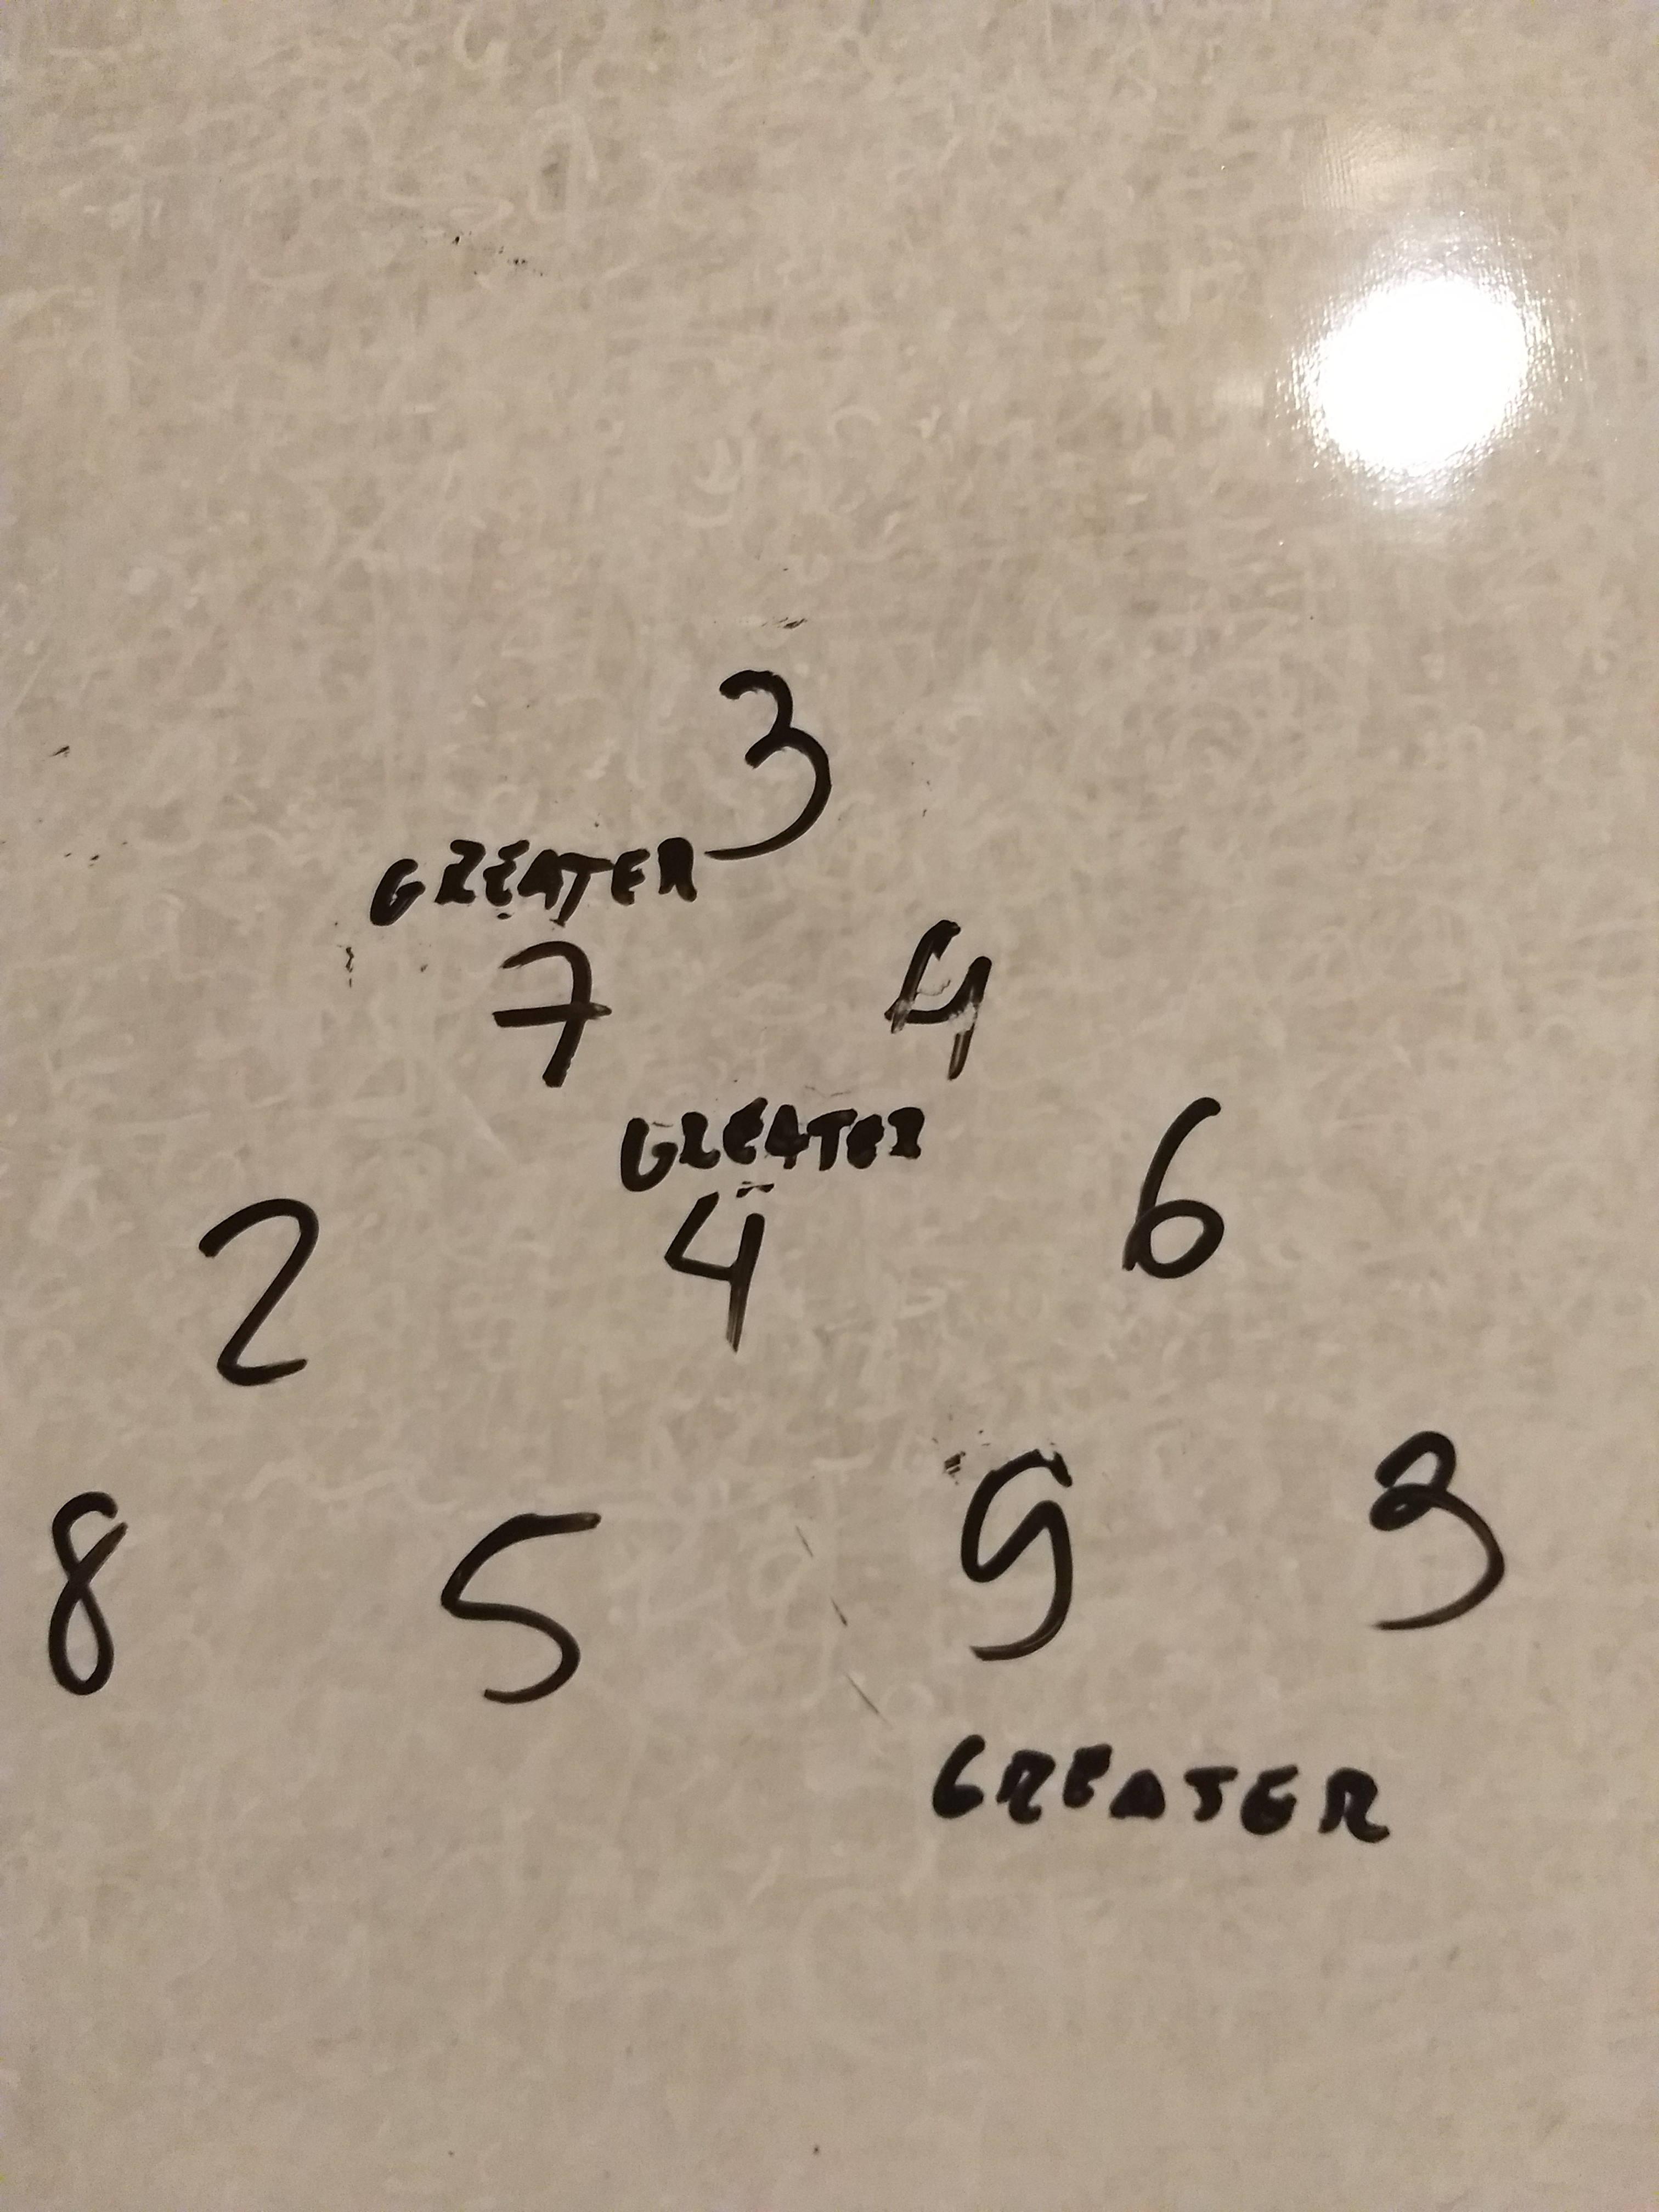 3
GREATER
7 4
GREATER
2 4 6
8 5 9 3
GREATER